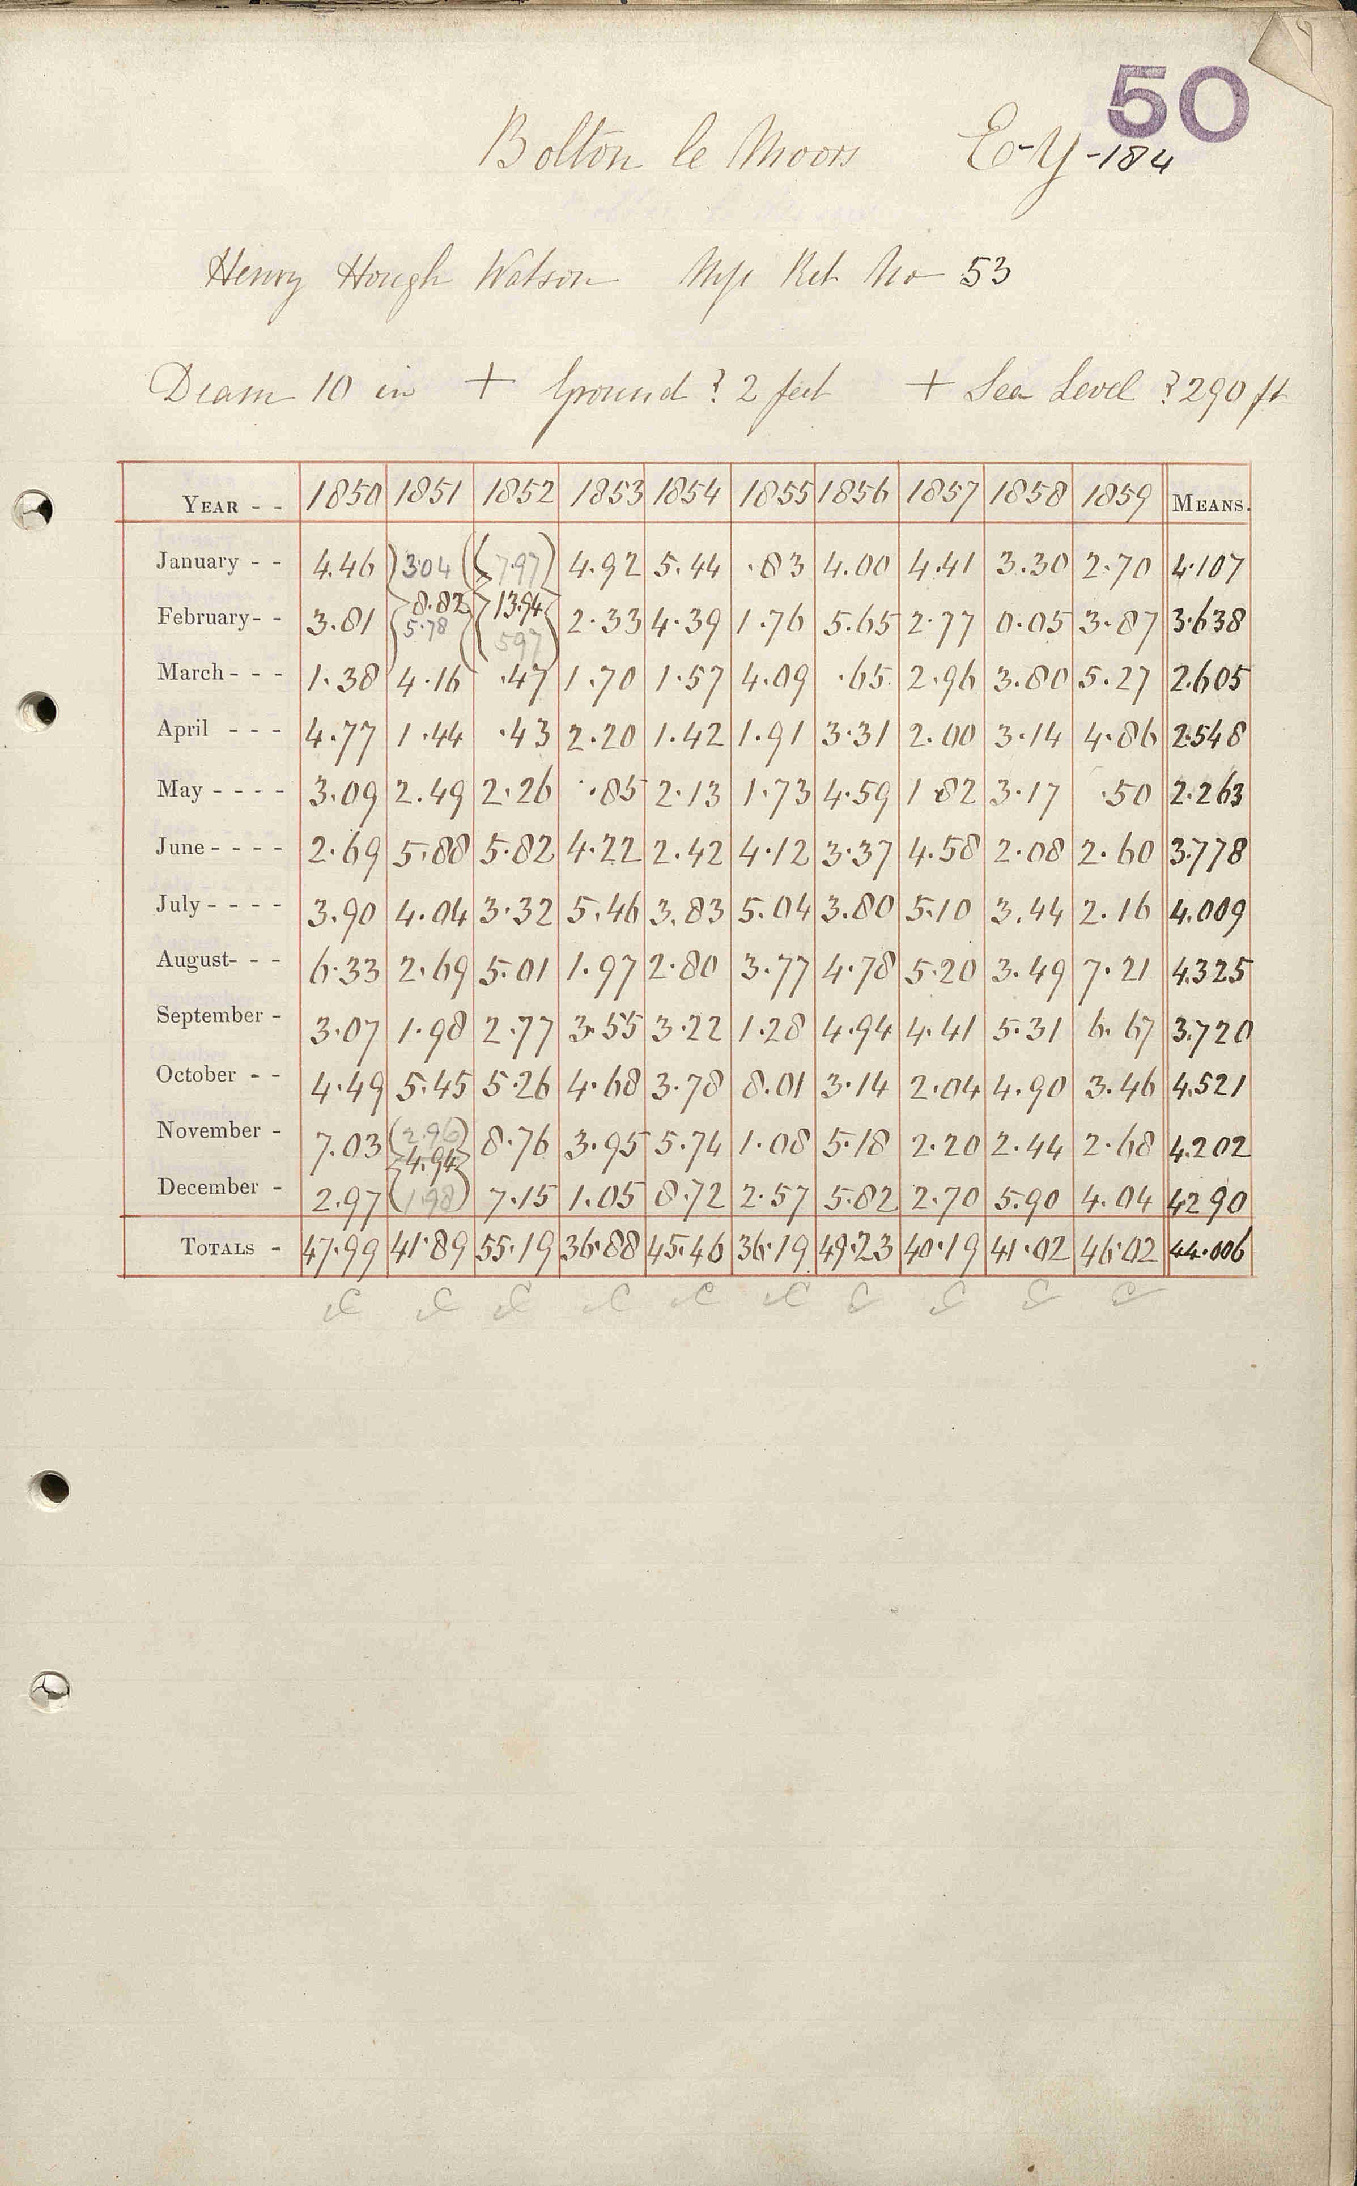 50
Bolton le Moors Eo-y-184
Henry Hough Watson Ms Ret No 53
Diam 10 in + Ground ? 2 feet + Sea Level ? 290 ft
YEAR - - 1850 1851 1852 1853 1854 1855 1856 1857 1858 1859 MEANS.
January - - 4.46 3.04 7.97 4.92 5.44 .83 4.00 4.41 3.30 2.70 4.107
8.82 13.94
February - - 3.81 5.78 5.97 2.33 4.39 1.76 5.65 2.77 0.05 3.87 3.638
March - - - 1.38 4.16 .47 1.70 1.57 4.09 .65 2.96 3.80 5.27 2.605
April - - - 4.77 1.44 .43 2.20 1.42 1.91 3.31 2.00 3.14 4.86 2.548
May - - - - 3.09 2.49 2.26 .85 2.13 1.73 4.59 1.82 3.17 .50 2.263
June - - - - 2.69 5.88 5.82 4.22 2.42 4.12 3.37 4.58 2.08 2.60 3.778
July - - - - 3.90 4.04 3.32 5.46 3.83 5.04 3.80 5.10 3.44 2.16 4.009
August- - - 6.33 2.69 5.01 1.97 2.80 3.77 4.78 5.20 3.49 7.21 4.325
September - 3.07 1.98 2.77 3.55 3.22 1.28 4.94 4.41 5.31 6.67 3.720
October - - 4.49 5.45 5.26 4.68 3.78 8.01 3.14 2.04 4.90 3.46 4.521
November - 7.03 (2.96) 8.76 3.95 5.74 1.08 5.18 2.20 2.44 2.68 4.202
4.94
December - 2.97 (1.98) 7.15 1.05 8.72 2.57 5.82 2.70 5.90 4.04 4.290
TOTALS - 47.99 41.89 55.19 36.88 45.46 36.19 49.23 40.19 41.02 46.02 44.006